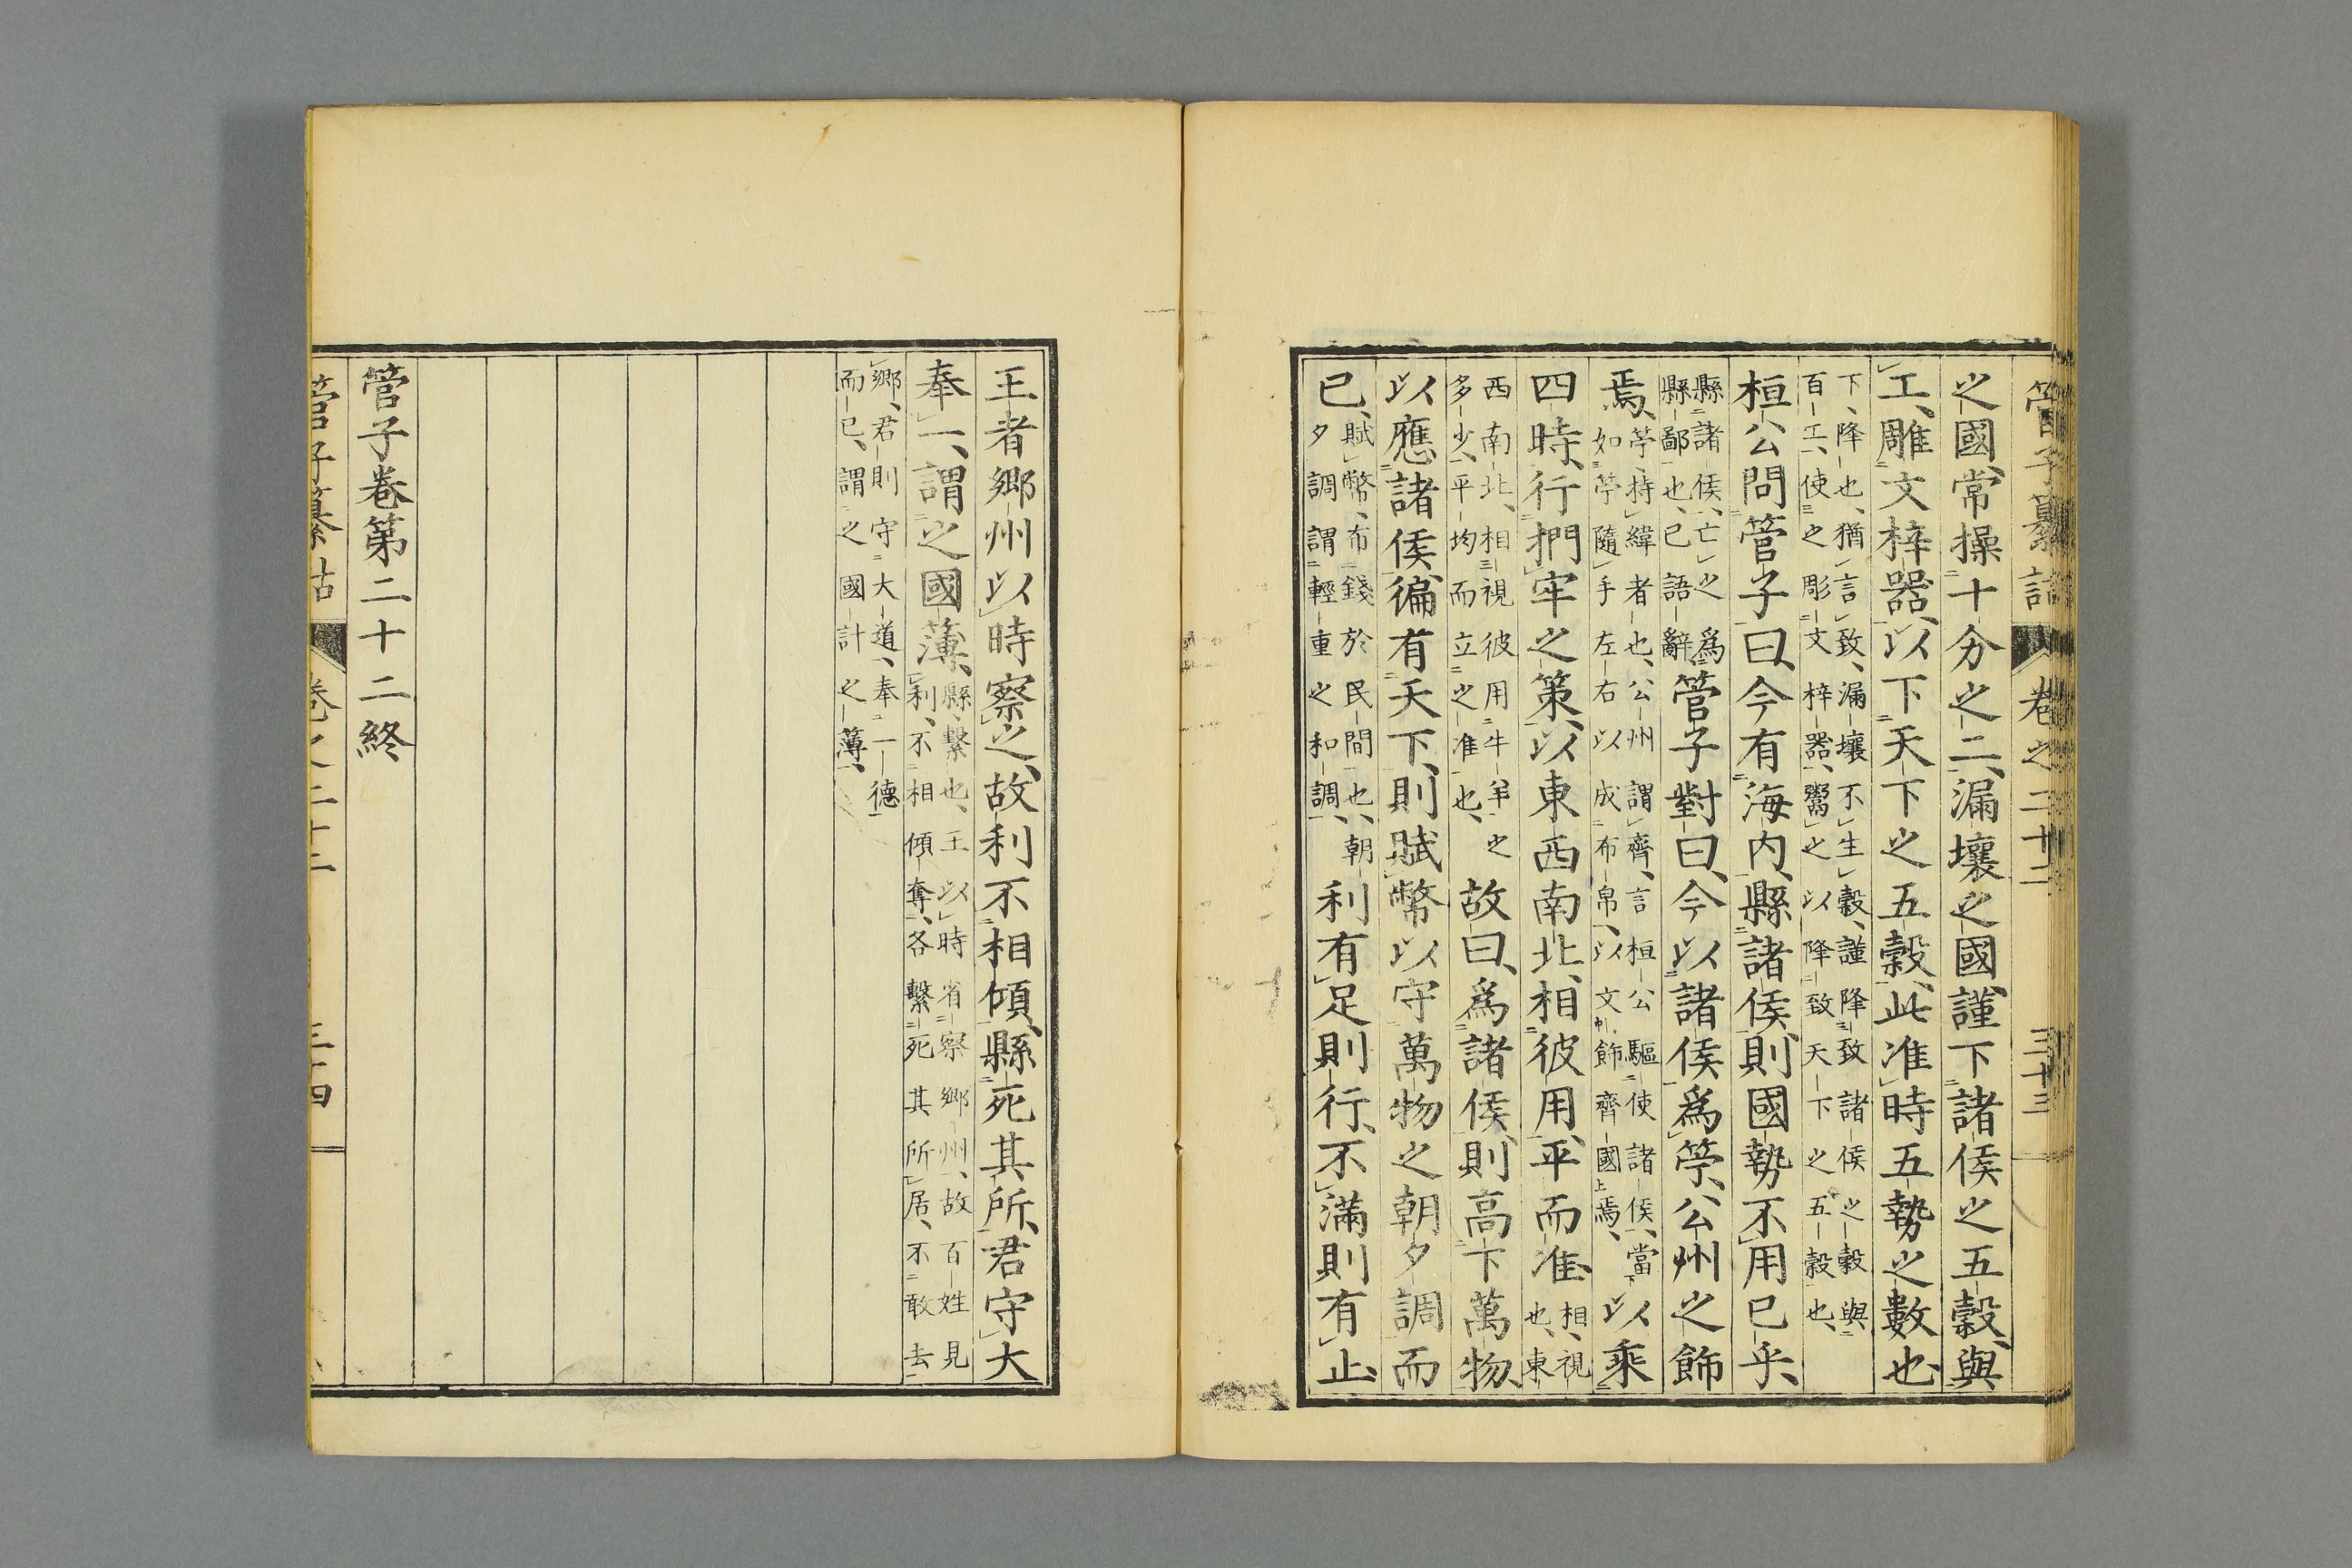 管子纂詁 卷之二十二 三十三
之國、常操十分之二、漏壤之國、謹下諸侯之五穀、與
工、雕文梓器、以下天下之五穀、此准時五勢之數也、
下、降也、猶言致、漏壤不生穀、謹降致諸侯之穀與
百工、使之彫文梓器、鬻之以降致天下之五穀也、
桓公問管子曰、今有海内、縣諸侯、則國勢不用已乎、
縣諸侯、亡之爲
縣鄙也、已語辭、
管子對曰、今以諸侯爲䇣、公州之飾
焉、
䇣、持緯者也、公州謂齊、言桓公驅使諸侯、當
如䇣隨手左右以成布帛、以文飾齊國焉、
以乘
四時、行捫牢之策、以東西南北、相彼用、平而准、
相、視
也、東
西南北、相視彼用牛羊之
多少、平均而立之准也、
故曰、爲諸侯、則高下萬物、
以應諸侯、徧有天下、則賦幣以守萬物之朝夕調而
已、
賦幣、布錢於民間也、朝
夕調謂輕重之和調、
利有足則行、不滿則有止、
王者郷州以時察之、故利不相傾、縣死其所、君守大
奉一、謂之國簿、
縣、繫也、王以時省察郷州、故百姓見
利、不相傾奪、各繫死其所居、不敢去
郷、君則守大道、奉一德
而已、謂之國計之薄、
管子卷第二十二終
管子纂詁 卷之二十二 三十四